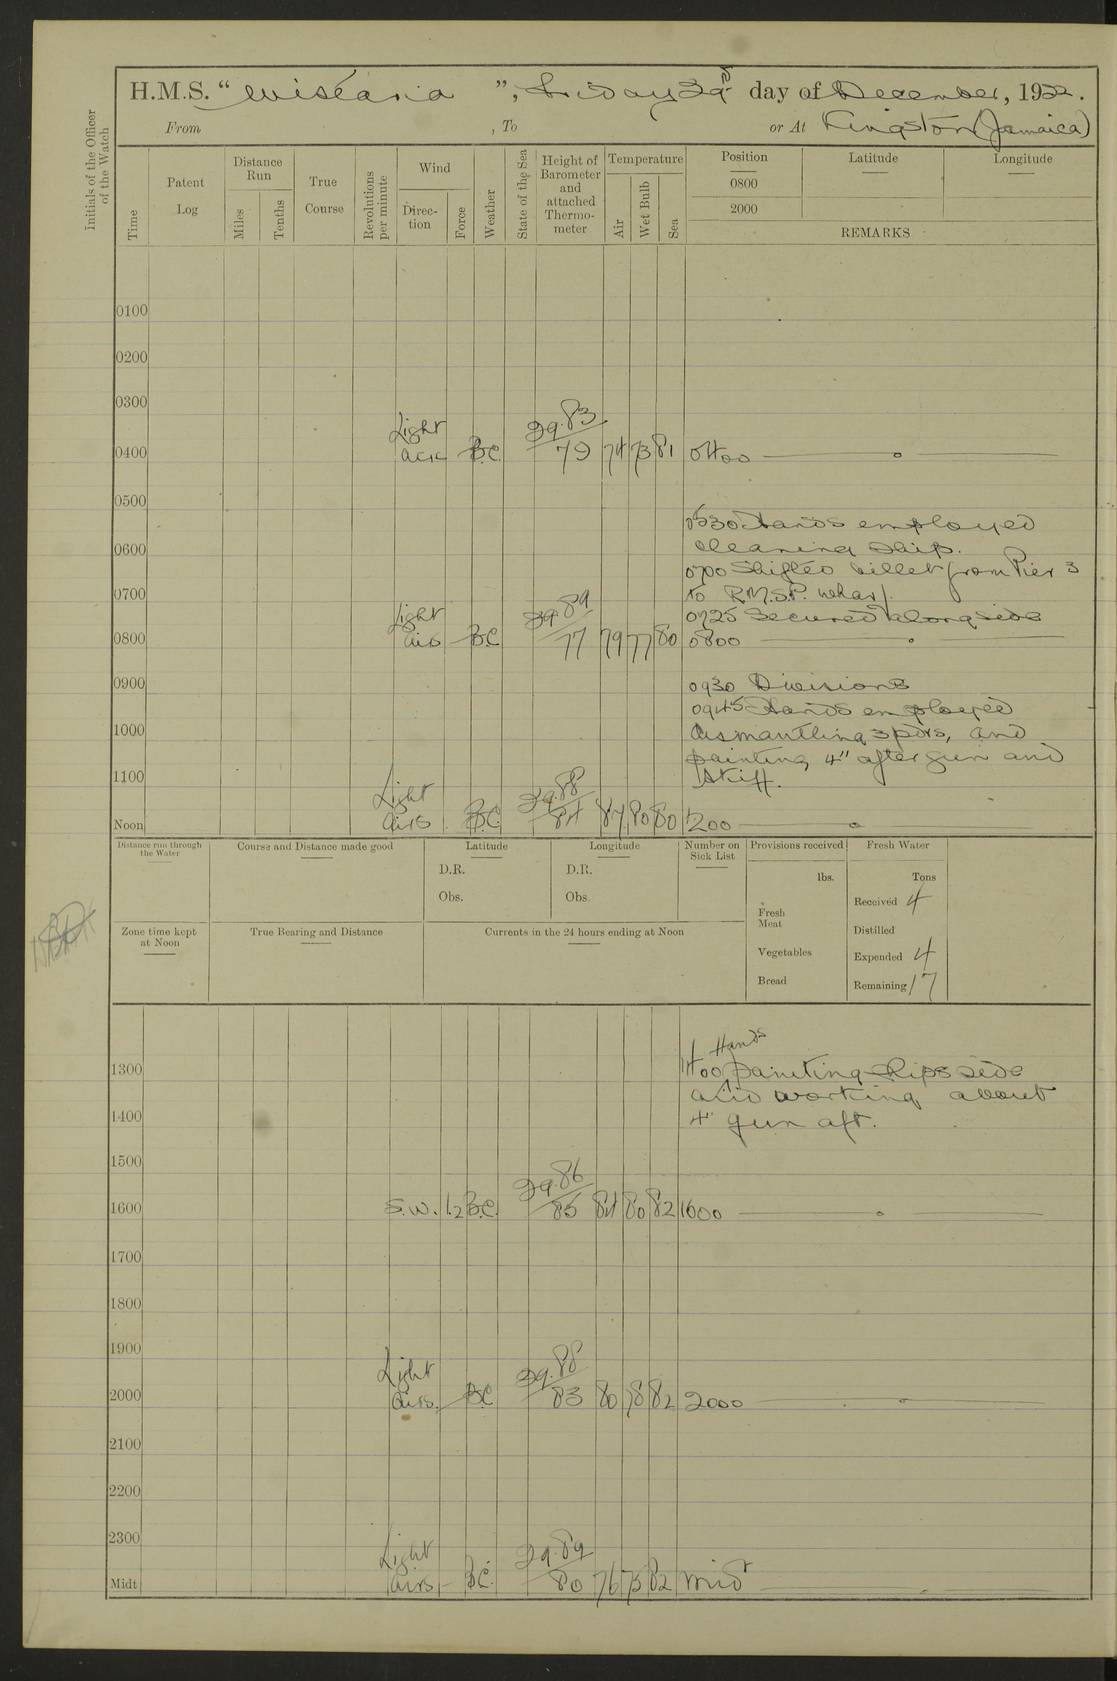 H.M.S. "Wistaria", Friday 29th day of December, 1922.
From , To or At Kingston (Jamaica)
Initials of the Officer of the Watch
Time
Patent Log
Distance Run
Miles
Tenths
True Course
Revolutions per minute
Wind
Direction
Force
Weather
State of the Sea
Height of Barometer and attached Thermometer
Temperature
Air
Wet Bulb
Sea
Position
0800
2000
Latitude
Longitude
REMARKS
0100
0200
0300
0400 Light airs B.C. 29.83 79 74 73 81 0400
0500
0530 Hands employed
cleaning ship.
0600
0700 Shifted billet from Pier 3
0700
to R.M.S.P. wharf.
0725 Secured alongside
0800 Light airs BC 29.89 77 79 77 80 0800
0900
0930 Divisions
0945 Hands employed
1000
dismantling 3pdrs, and
painting 4" after gun and
1100
skiff.
Noon Light airs BC 29.88 84 87 80 80 1200
Distance run through the Water
Course and Distance made good
Latitude
D.R.
Obs.
Longitude
D.R.
Obs.
Number on Sick List
Provisions received
lbs.
Fresh Meat
Vegetables
Bread
Fresh Water
Tons
Received 4
Distilled
Expended 4
Remaining 17
Zone time kept at Noon
True Bearing and Distance
Currents in the 24 hours ending at Noon
Hands
1300
1400 painting ships side
and working about
1400
4" gun aft.
1500
1600 S.W. 1.2 B.C. 29.86 85 84 80 82 1600
1700
1800
1900
2000 Light airs. BC 29.88 83 80 78 82 2000
2100
2200
2300
Midt Light airs BC. 29.89 80 76 75 82 Mid